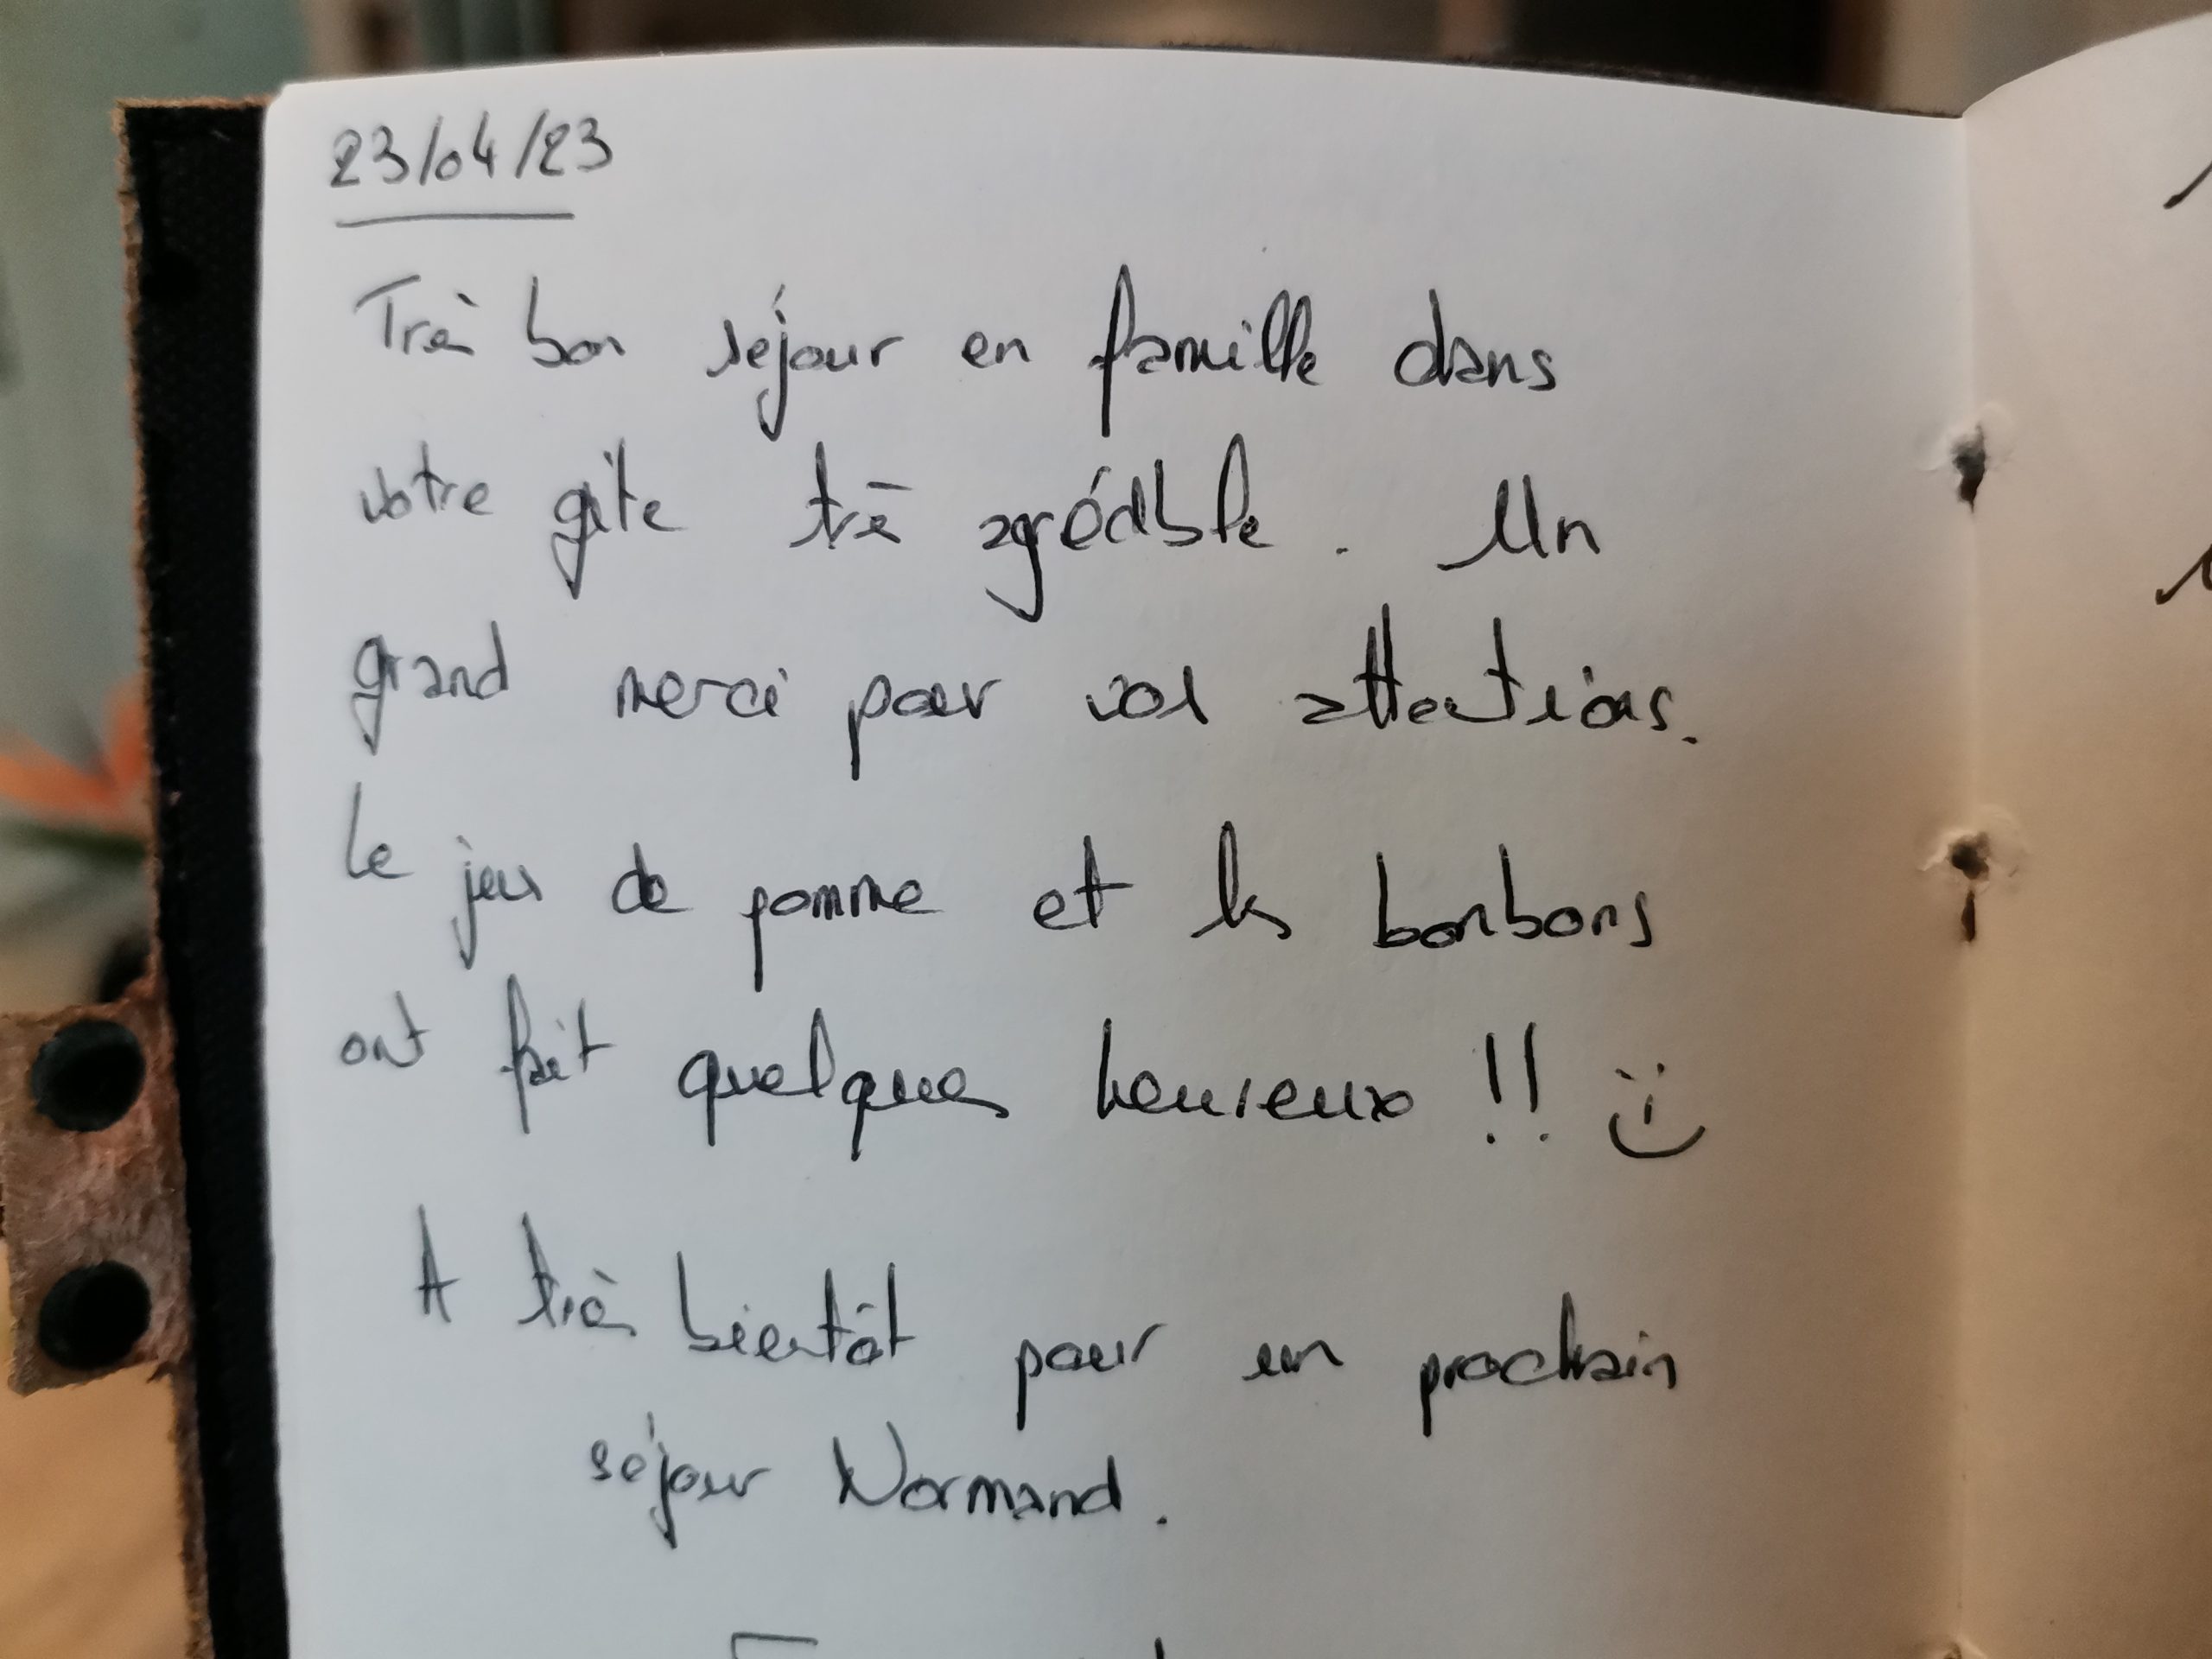 23/04/23
Très bon séjour en famille dans
votre gîte très agréable. Un
grand merci pour vos attentions.
Le jeu de pomme et les bonbons
ont fait quelques heureux !! :)
A très bientôt pour un prochain
séjour Normand.